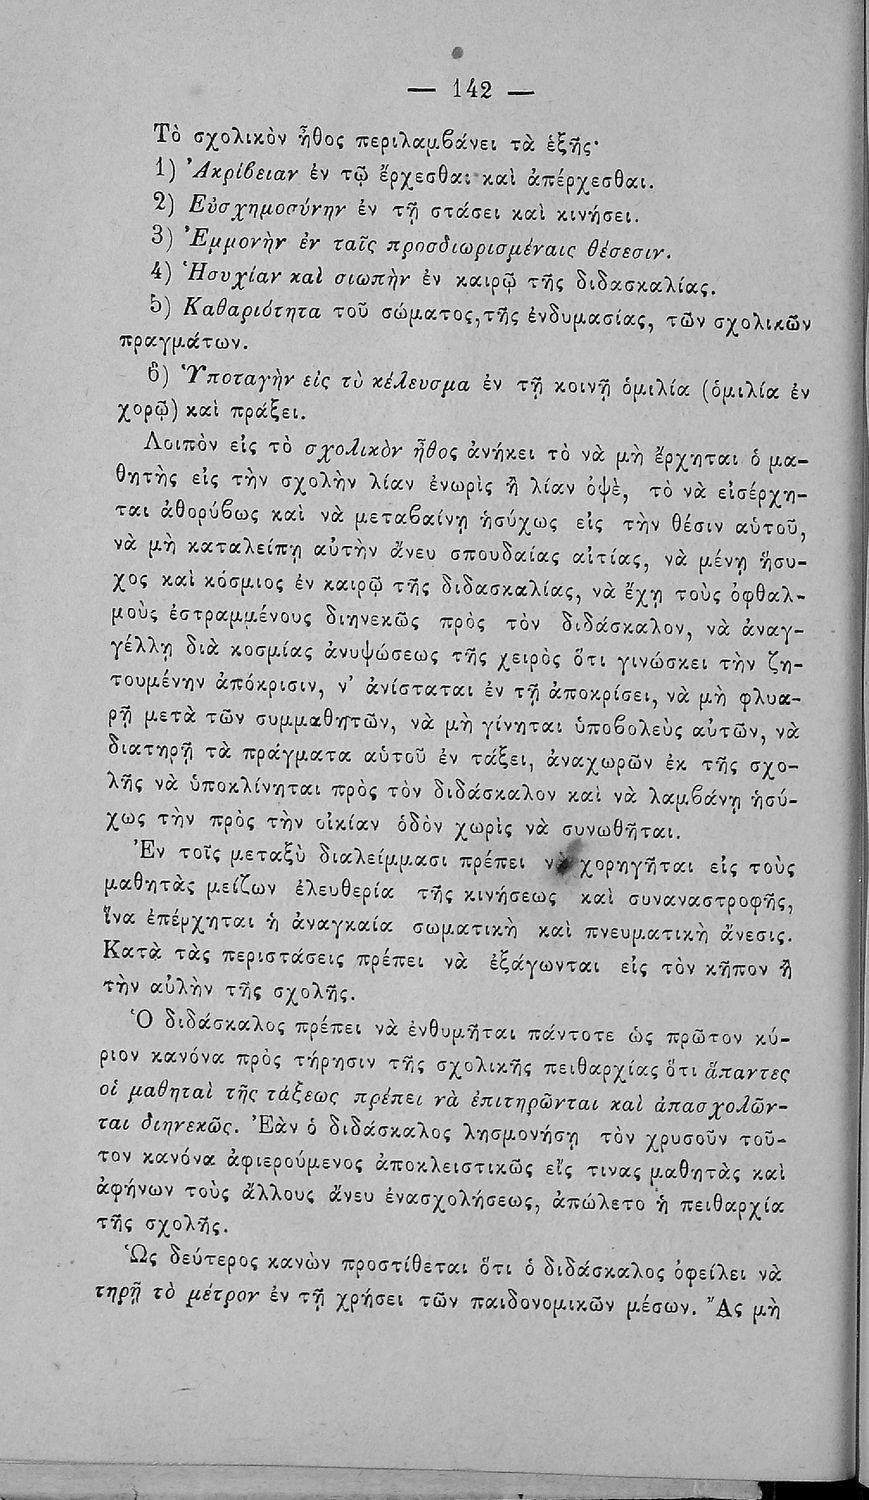 — 142 —
Τὸ σχολικὸν ἦθος περιλαμβάνει τὰ ἑξῆς·
1) Ἀκρίβειαν ἐν τῷ ἔρχεσθαι καὶ ἀπέρχεσθαι.
2) Εὐσχημοσύνην ἐν τῇ στάσει καὶ κινήσει.
3) Ἐμμονὴν ἐν ταῖς προσδιωρισμέναις θέσεσιν.
4) Ἡσυχίαν καὶ σιωπὴν ἐν καιρῷ τῆς διδασκαλίας.
5) Καθαριότητα τοῦ σώματος, τῆς ἐνδυμασίας, τῶν σχολικῶν
πραγμάτων.
6) Ὑποταγὴν εἰς τὸ κέλευσμα ἐν τῇ κοινῇ ὁμιλίᾳ (ὁμιλίᾳ ἐν
χορῷ) καὶ πράξει.
Λοιπὸν εἰς τὸ σχολικὸν ἦθος ἀνήκει τὸ νὰ μὴ ἔρχηται ὁ μα-
θητὴς εἰς τὴν σχολὴν λίαν ἐνωρὶς ἢ λίαν ὀψὲ, τὸ νὰ εἰσέρχη-
ται ἀθορύβως καὶ νὰ μεταβαίνῃ ἡσύχως εἰς τὴν θέσιν αὑτοῦ,
νὰ μὴ καταλείπῃ αὐτὴν ἄνευ σπουδαίας αἰτίας, νὰ μένῃ ἥσυ-
χος καὶ κόσμιος ἐν καιρῷ τῆς διδασκαλίας, νὰ ἔχῃ τοὺς ὀφθαλ-
μοὺς ἐστραμμένους διηνεκῶς πρὸς τὸν διδάσκαλον, νὰ ἀναγ-
γέλλῃ διὰ κοσμίας ἀνυψώσεως τῆς χειρὸς ὅτι γινώσκει τὴν ζη-
τουμένην ἀπόκρισιν, ν' ἀνίσταται ἐν τῇ ἀποκρίσει, νὰ μὴ φλυα-
ρῇ μετὰ τῶν συμμαθητῶν, νὰ μὴ γίνηται ὑποβολεὺς αὐτῶν, νὰ
διατηρῇ τὰ πράγματα αὑτοῦ ἐν τάξει, ἀναχωρῶν ἐκ τῆς σχο-
λῆς νὰ ὑποκλίνηται πρὸς τὸν διδάσκαλον καὶ νὰ λαμβάνῃ ἡσύ-
χως τὴν πρὸς τὴν οἰκίαν ὁδὸν χωρὶς νὰ συνωθῆται.
Ἐν τοῖς μεταξὺ διαλείμμασι πρέπει νὰ χορηγῆται εἰς τοὺς
μαθητὰς μείζων ἐλευθερία τῆς κινήσεως καὶ συναναστροφῆς,
ἵνα ἐπέρχηται ἡ ἀναγκαία σωματικὴ καὶ πνευματικὴ ἄνεσις.
Κατὰ τὰς περιστάσεις πρέπει νὰ ἐξάγωνται εἰς τὸν κῆπον ἢ
τὴν αὐλὴν τῆς σχολῆς.
Ὁ διδάσκαλος πρέπει νὰ ἐνθυμῆται πάντοτε ὡς πρῶτον κύ-
ριον κανόνα πρὸς τήρησιν τῆς σχολικῆς πειθαρχίας ὅτι ἅπαντες
οἱ μαθηταὶ τῆς τάξεως πρέπει νὰ ἐπιτηρῶνται καὶ ἀπασχολῶν-
ται διηνεκῶς. Ἐὰν ὁ διδάσκαλος λησμονήσῃ τὸν χρυσοῦν τοῦ-
τον κανόνα ἀφιερούμενος ἀποκλειστικῶς εἴς τινας μαθητὰς καὶ
ἀφήνων τοὺς ἄλλους ἄνευ ἐνασχολήσεως, ἀπώλετο ἡ πειθαρχία
τῆς σχολῆς.
Ὡς δεύτερος κανὼν προστίθεται ὅτι ὁ διδάσκαλος ὀφείλει νὰ
τηρῇ τὸ μέτρον ἐν τῇ χρήσει τῶν παιδονομικῶν μέσων. Ἂς μὴ